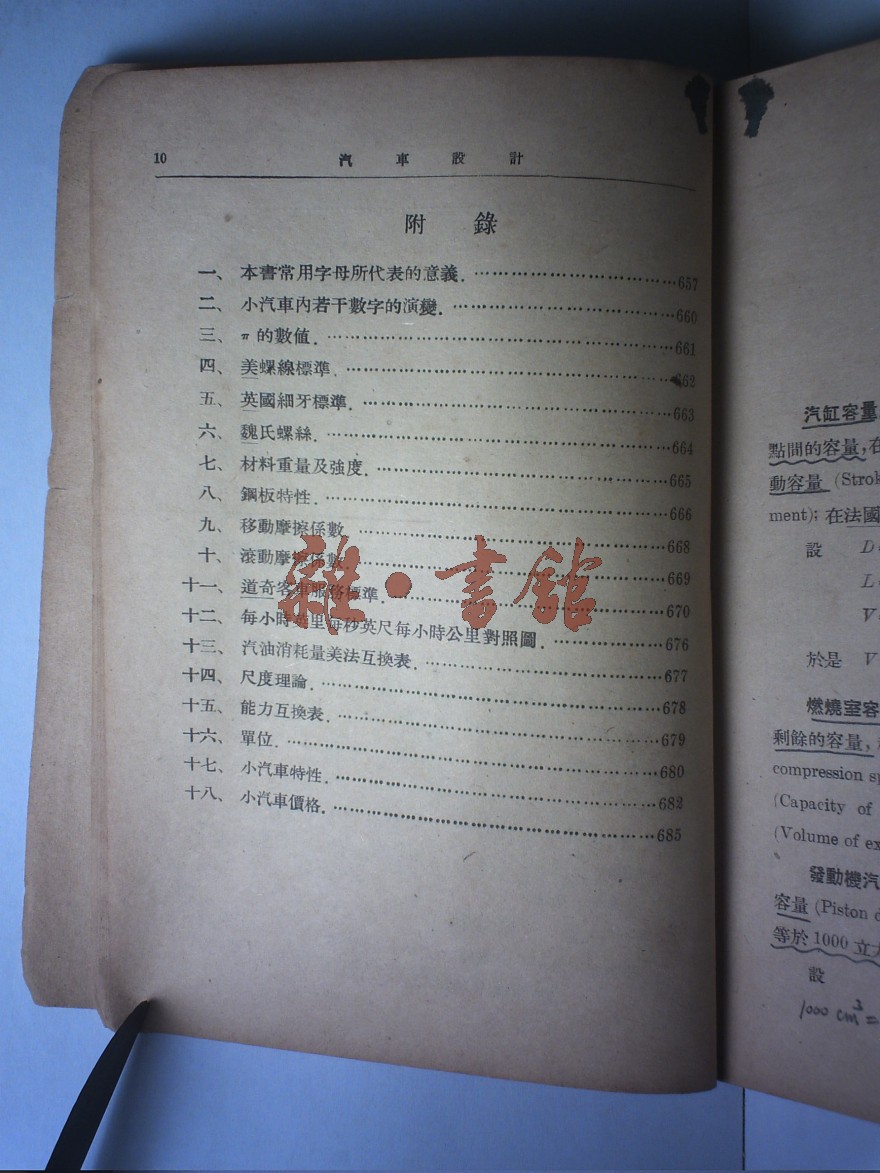 10 汽車設計
附錄
一、 本書常用字母所代表的意義 657
二、 小汽車內若干數字的演變 660
三、 π的數值 661
四、 美螺線標準 662
五、 英國細牙標準 663
六、 魏氏螺絲 664
七、 材料重量及強度 665
八、 鋼板特性 666
九、 移動摩擦係數 668
十、 滾動摩擦係數 669
十一、 道奇客車服務標準 670
十二、 每小時英里每秒英尺每小時公里對照圖 676
十三、 汽油消耗量美法互換表 677
十四、 尺度理論 678
十五、 能力互換表 679
十六、 單位 680
十七、 小汽車特性 682
十八、 小汽車價格 685
雜·書館
汽缸容量
點間的容量,在
動容量 (Strok
ment); 在法國
設 D
L
V
於是 V
燃燒室容
剩餘的容量,
compression sp
(Capacity of
(Volume of ex
發動機汽
容量 (Piston d
等於 1000 立
設
1000 cm³ =